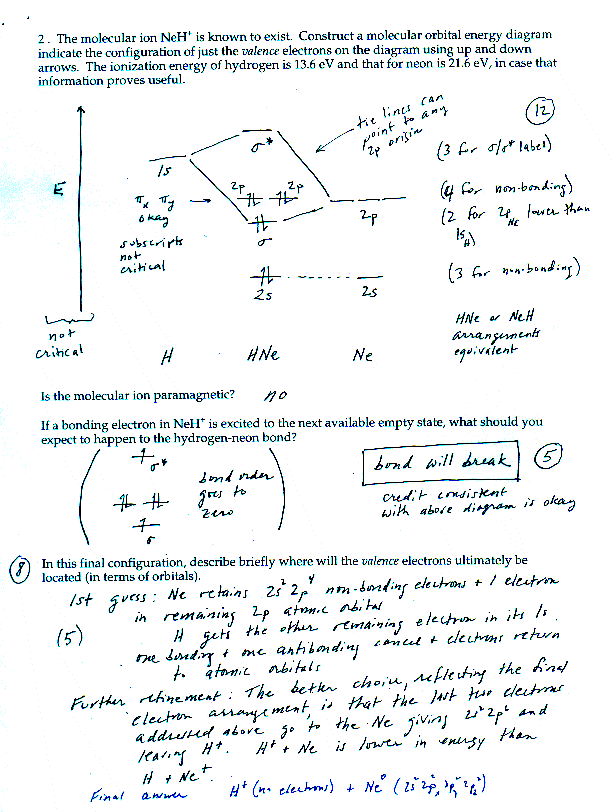 2. The molecular ion NeH⁺ is known to exist. Construct a molecular orbital energy diagram
indicate the configuration of just the valence electrons on the diagram using up and down
arrows. The ionization energy of hydrogen is 13.6 eV and that for neon is 21.6 eV, in case that
information proves useful.
tie lines can
point to any
2p origin
12
σ*
(3 for σ/σ* label)
1s
E
πx πy
okay
2p 2p
2p
(4 for non-bonding)
(2 for 2pNe lower than
1sH)
subscripts
not
critical
σ
2s
2s
(3 for non-bonding)
not
critical
H
HNe
Ne
HNe or NeH
arrangements
equivalent
Is the molecular ion paramagnetic? no
If a bonding electron in NeH⁺ is excited to the next available empty state, what should you
expect to happen to the hydrogen-neon bond?
σ*
bond order
goes to
zero
σ
bond will break
5
credit consistent
with above diagram is okay
8
In this final configuration, describe briefly where will the valence electrons ultimately be
located (in terms of orbitals).
1st guess: Ne retains 2s² 2p⁴ non-bonding electrons + 1 electron
in remaining 2p atomic orbital
(5)
H gets the other remaining electron in its 1s.
one bonding + one antibonding cancel + electrons return
to atomic orbitals
Further refinement: The better choice, reflecting the final
electron arrangement, is that the last two electrons
addressed above go to the Ne giving 2s² 2p⁶ and
leaving H⁺. H⁺ + Ne is lower in energy than
H + Ne⁺.
Final answer H⁺ (no electrons) + Ne⁰ (2s² 2px² 2py² 2pz²)